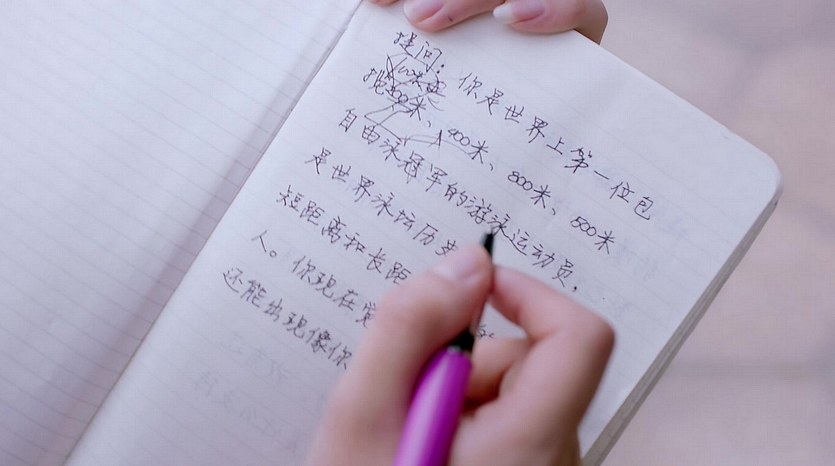 提问：你是世界上第一位包
揽200米、400米、800米、500米
自由泳冠军的游泳运动员，
是世界泳坛历史
短距离和长距
人。你现在觉
还能出现像你